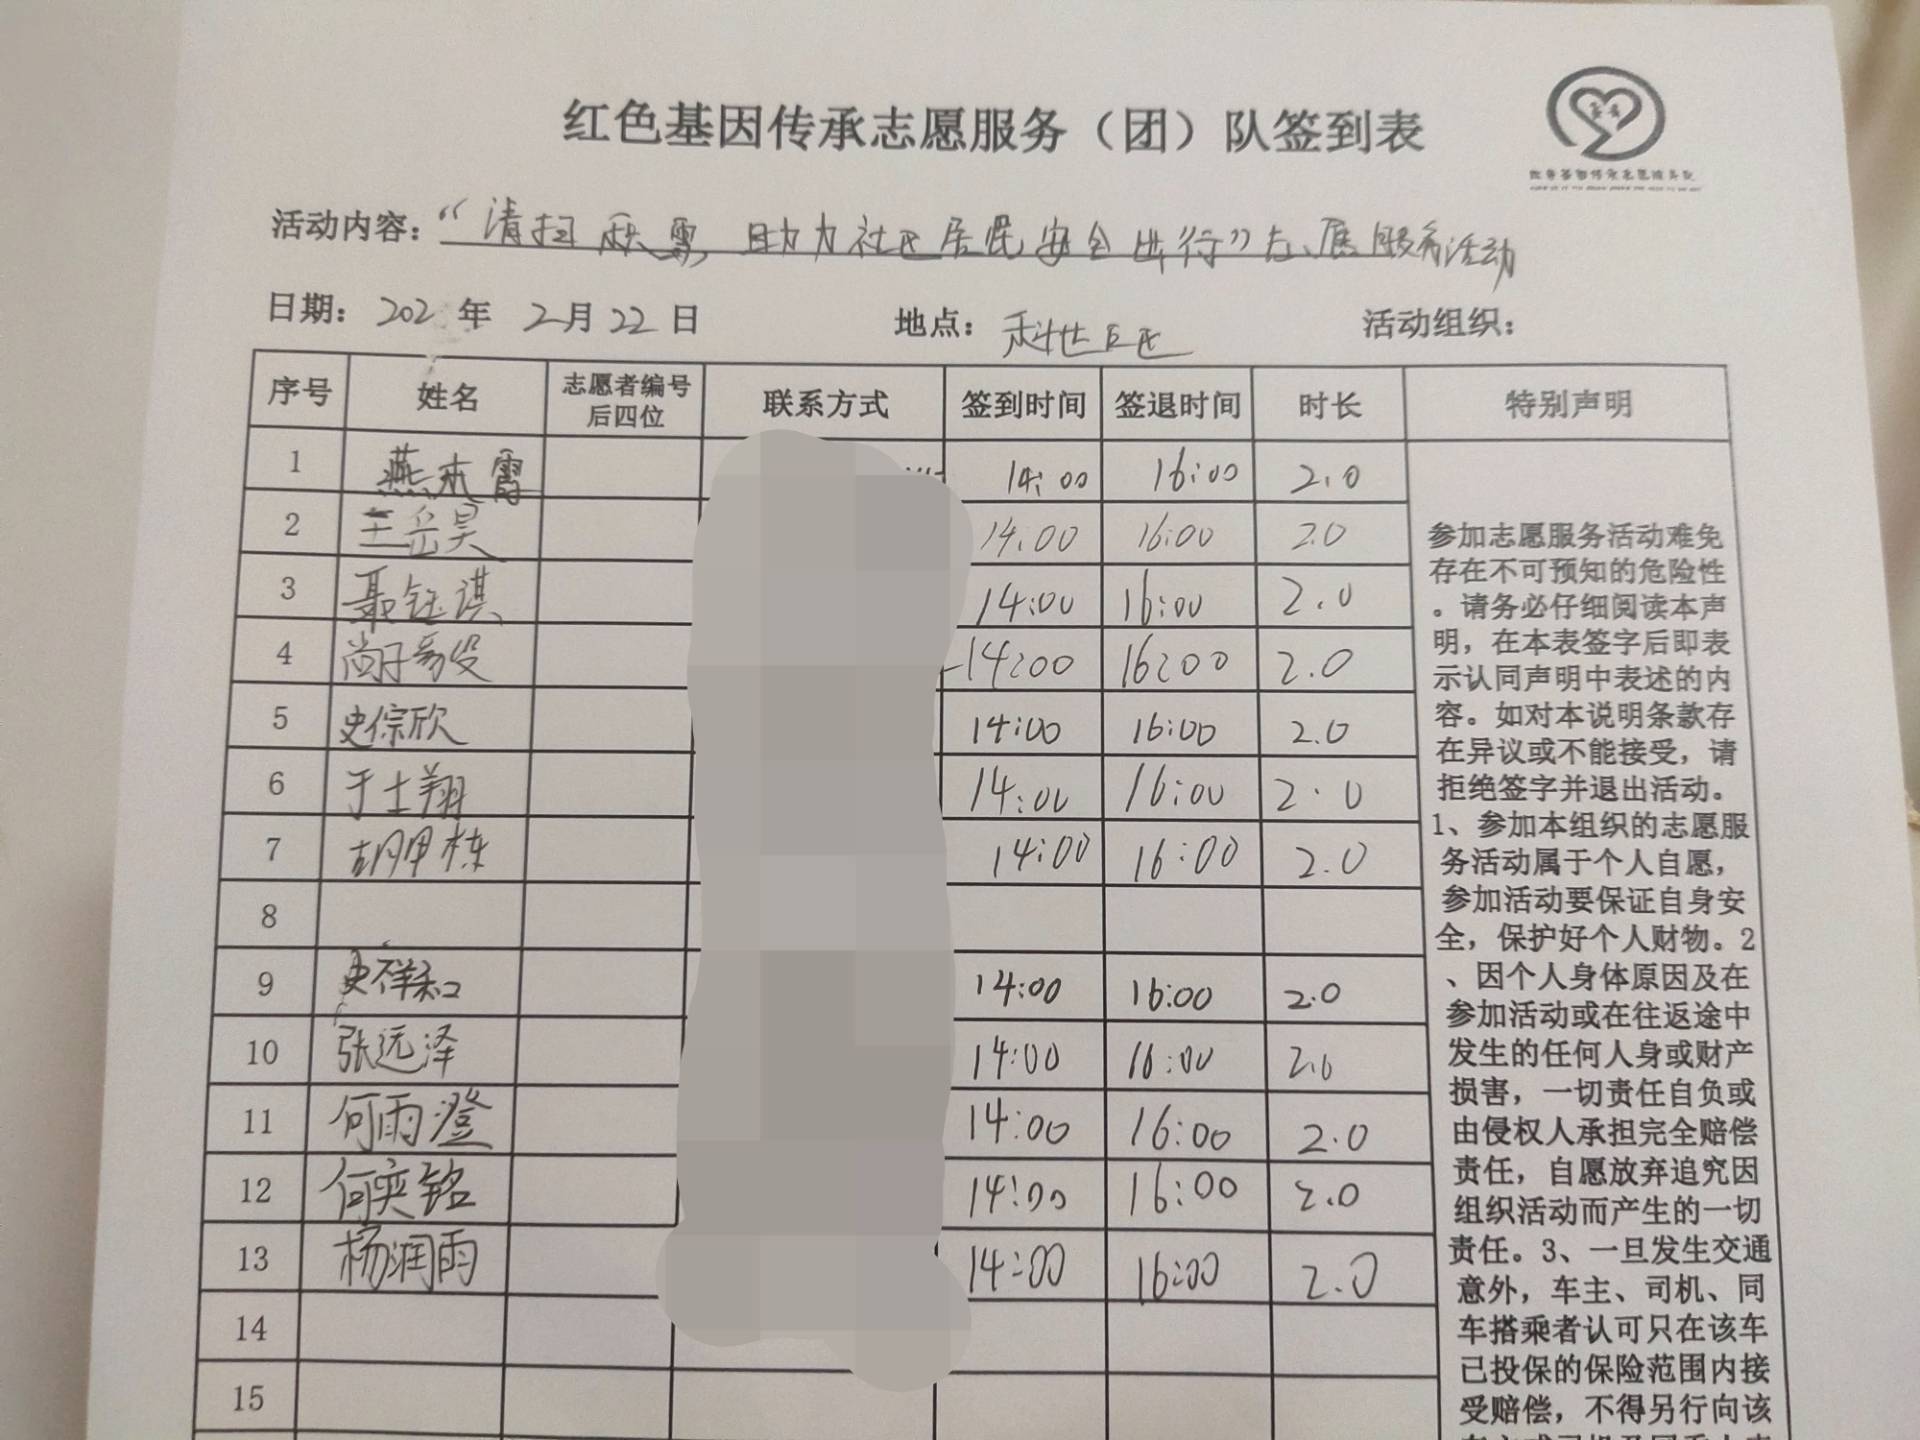 红色基因传承志愿服务（团）队签到表
活动内容：“清扫积雪 助力社区居民安全出行”志愿服务活动
日期：202 年 2月22日 地点：科世社区 活动组织：
序号 姓名 志愿者编号后四位 联系方式 签到时间 签退时间 时长 特别声明
1 燕本霞 14:00 16:00 2.0
2 王岳昊 14:00 16:00 2.0
3 聂钰淇 14:00 16:00 2.0
4 尚子 14:00 16:00 2.0
5 史倧欣 14:00 16:00 2.0
6 于士翔 14:00 16:00 2.0
7 胡甲栋 14:00 16:00 2.0
8
9 史祥和 14:00 16:00 2.0
10 张远泽 14:00 16:00 2.0
11 何雨澄 14:00 16:00 2.0
12 何奕铭 14:00 16:00 2.0
13 杨润雨 14:00 16:00 2.0
14
15
参加志愿服务活动难免
存在不可预知的危险性
。请务必仔细阅读本声
明，在本表签字后即表
示认同声明中表述的内
容。如对本说明条款存
在异议或不能接受，请
拒绝签字并退出活动。
1、参加本组织的志愿服
务活动属于个人自愿，
参加活动要保证自身安
全，保护好个人财物。2
、因个人身体原因及在
参加活动或在往返途中
发生的任何人身或财产
损害，一切责任自负或
由侵权人承担完全赔偿
责任，自愿放弃追究因
组织活动而产生的一切
责任。3、一旦发生交通
意外，车主、司机、同
车搭乘者认可只在该车
已投保的保险范围内接
受赔偿，不得另行向该